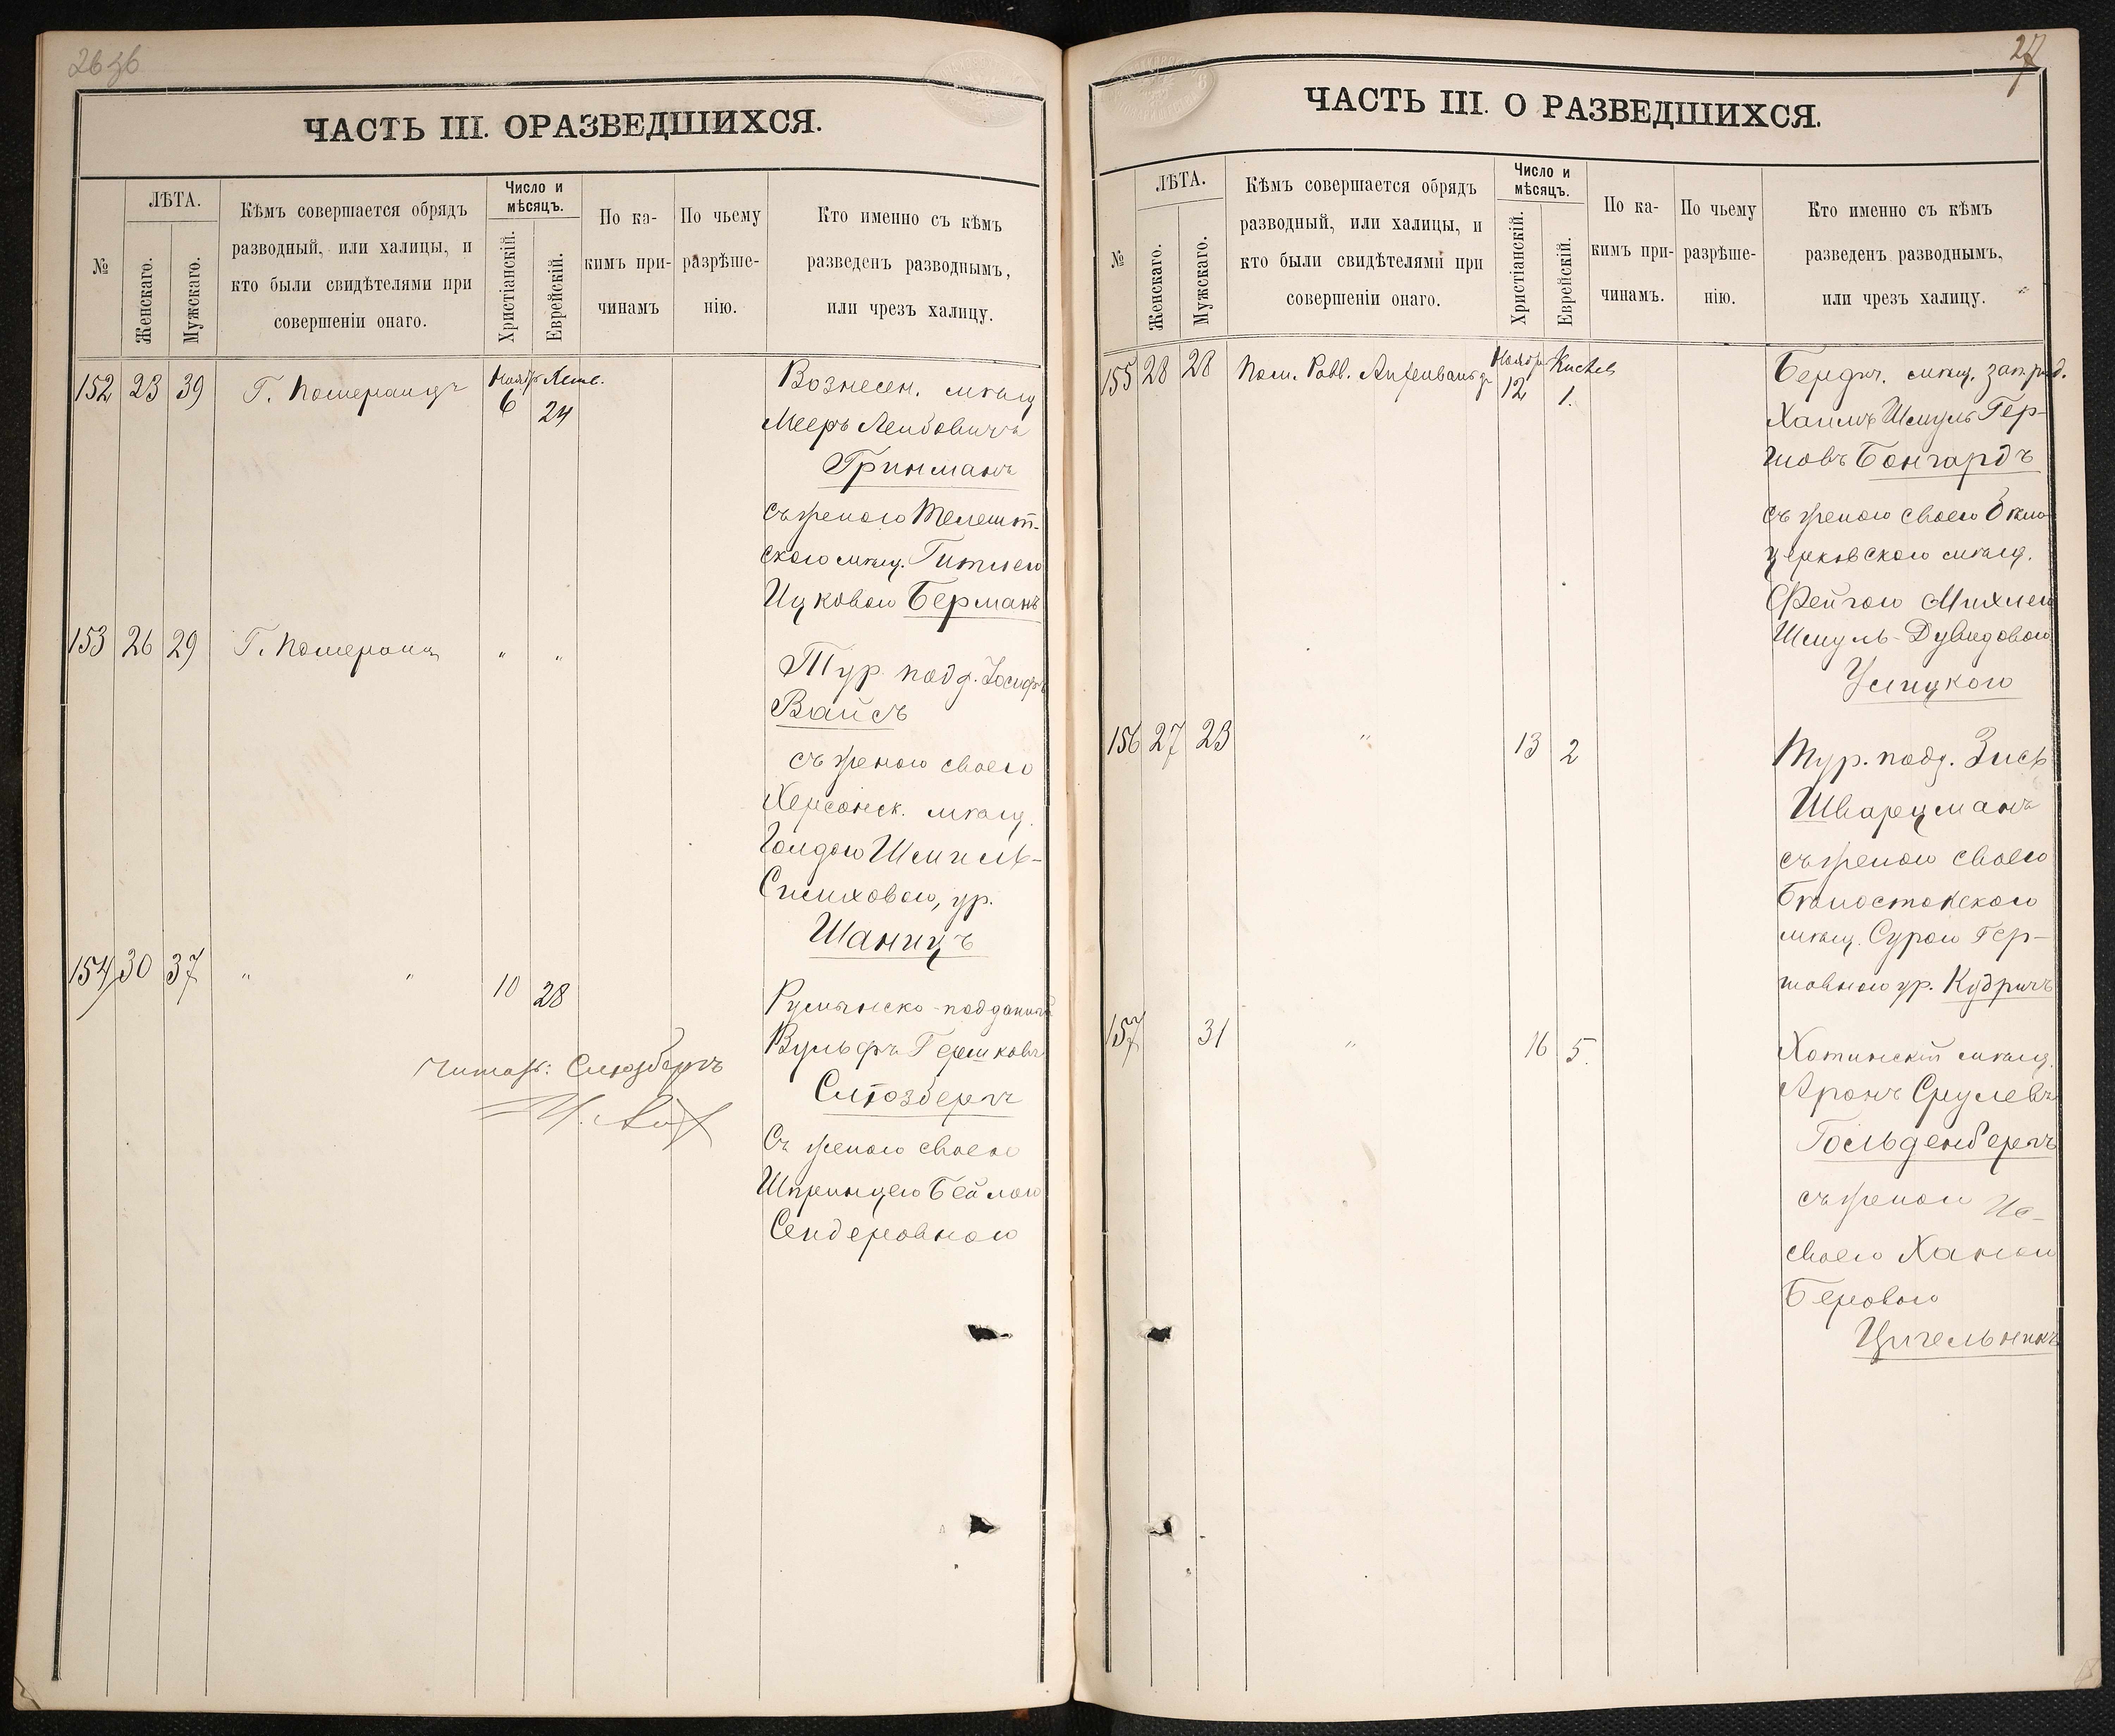 26 зб
ЧАСТЬ III. О РАЗВЕДШИХСЯ.
№
ЛѢТА.
Женскаго.
Мужскаго.
Кѣмъ совершается обрядъ
разводный, или халицы, и
кто были свидѣтелями при
совершеніи онаго.
Число и
мѣсяцъ.
Христіанскій.
Еврейскій.
По ка-
кимъ при-
чинамъ
По чьему
разрѣше-
нію.
Кто именно съ кѣмъ
разведенъ разводнымъ,
или чрезъ халицу.
152 23 39 Г. Померанцъ Ноябр. 6 24
Вознесен. мѣщ
Мееръ Лейбовичъ
Гринманъ
съ женою Телешт-
скою мѣщ. Гитлею
Ицковою Берманъ
153 26 29 Г. Померанц " "
Тур. подд. Іосифъ
Вайсъ
съ женою своею
Херсонск. мѣщ.
Голдою Шмиль-
Симховою, ур.
Шаницъ
154 30 37 " " 10 28
Румынско-подданый
Вульфъ Гершковъ
Слюзбергъ
Съ женою своею
Шпринцею Бейлою
Сендеровною
Читалъ: Слюзбергъ
27
ЧАСТЬ III. О РАЗВЕДШИХСЯ.
№
ЛѢТА.
Женскаго.
Мужскаго.
Кѣмъ совершается обрядъ
разводный, или халицы, и
кто были свидѣтелями при
совершеніи онаго.
Число и
мѣсяцъ.
Христіанскій.
Еврейскій.
По ка-
кимъ при-
чинамъ.
По чьему
разрѣше-
нію.
Кто именно съ кѣмъ
разведенъ разводнымъ,
или чрезъ халицу.
155 28 28 Пом. Равв. Ноябр 12 Кислев 1.
Бердич. мѣщ.
Хаимъ Шмуль Гер-
шовъ Бонгардъ
съ женою своею Бѣло-
церковскою мѣщ.
Фейгою Михлею
Шмуль-Дувидовою
Услицкою
156 27 23 " 13 2
Тур. подд. Зись
Шварцманъ
съ женою своею
Бѣлостокскою
мѣщ. Сурою Гер-
шовною ур. Кудричъ
157 31 " 16 5.
Хотинскій мѣщ.
Аронъ Срулевъ
Гольденбергъ
съ женою
своею Ханою
Беровою
Цигельникъ